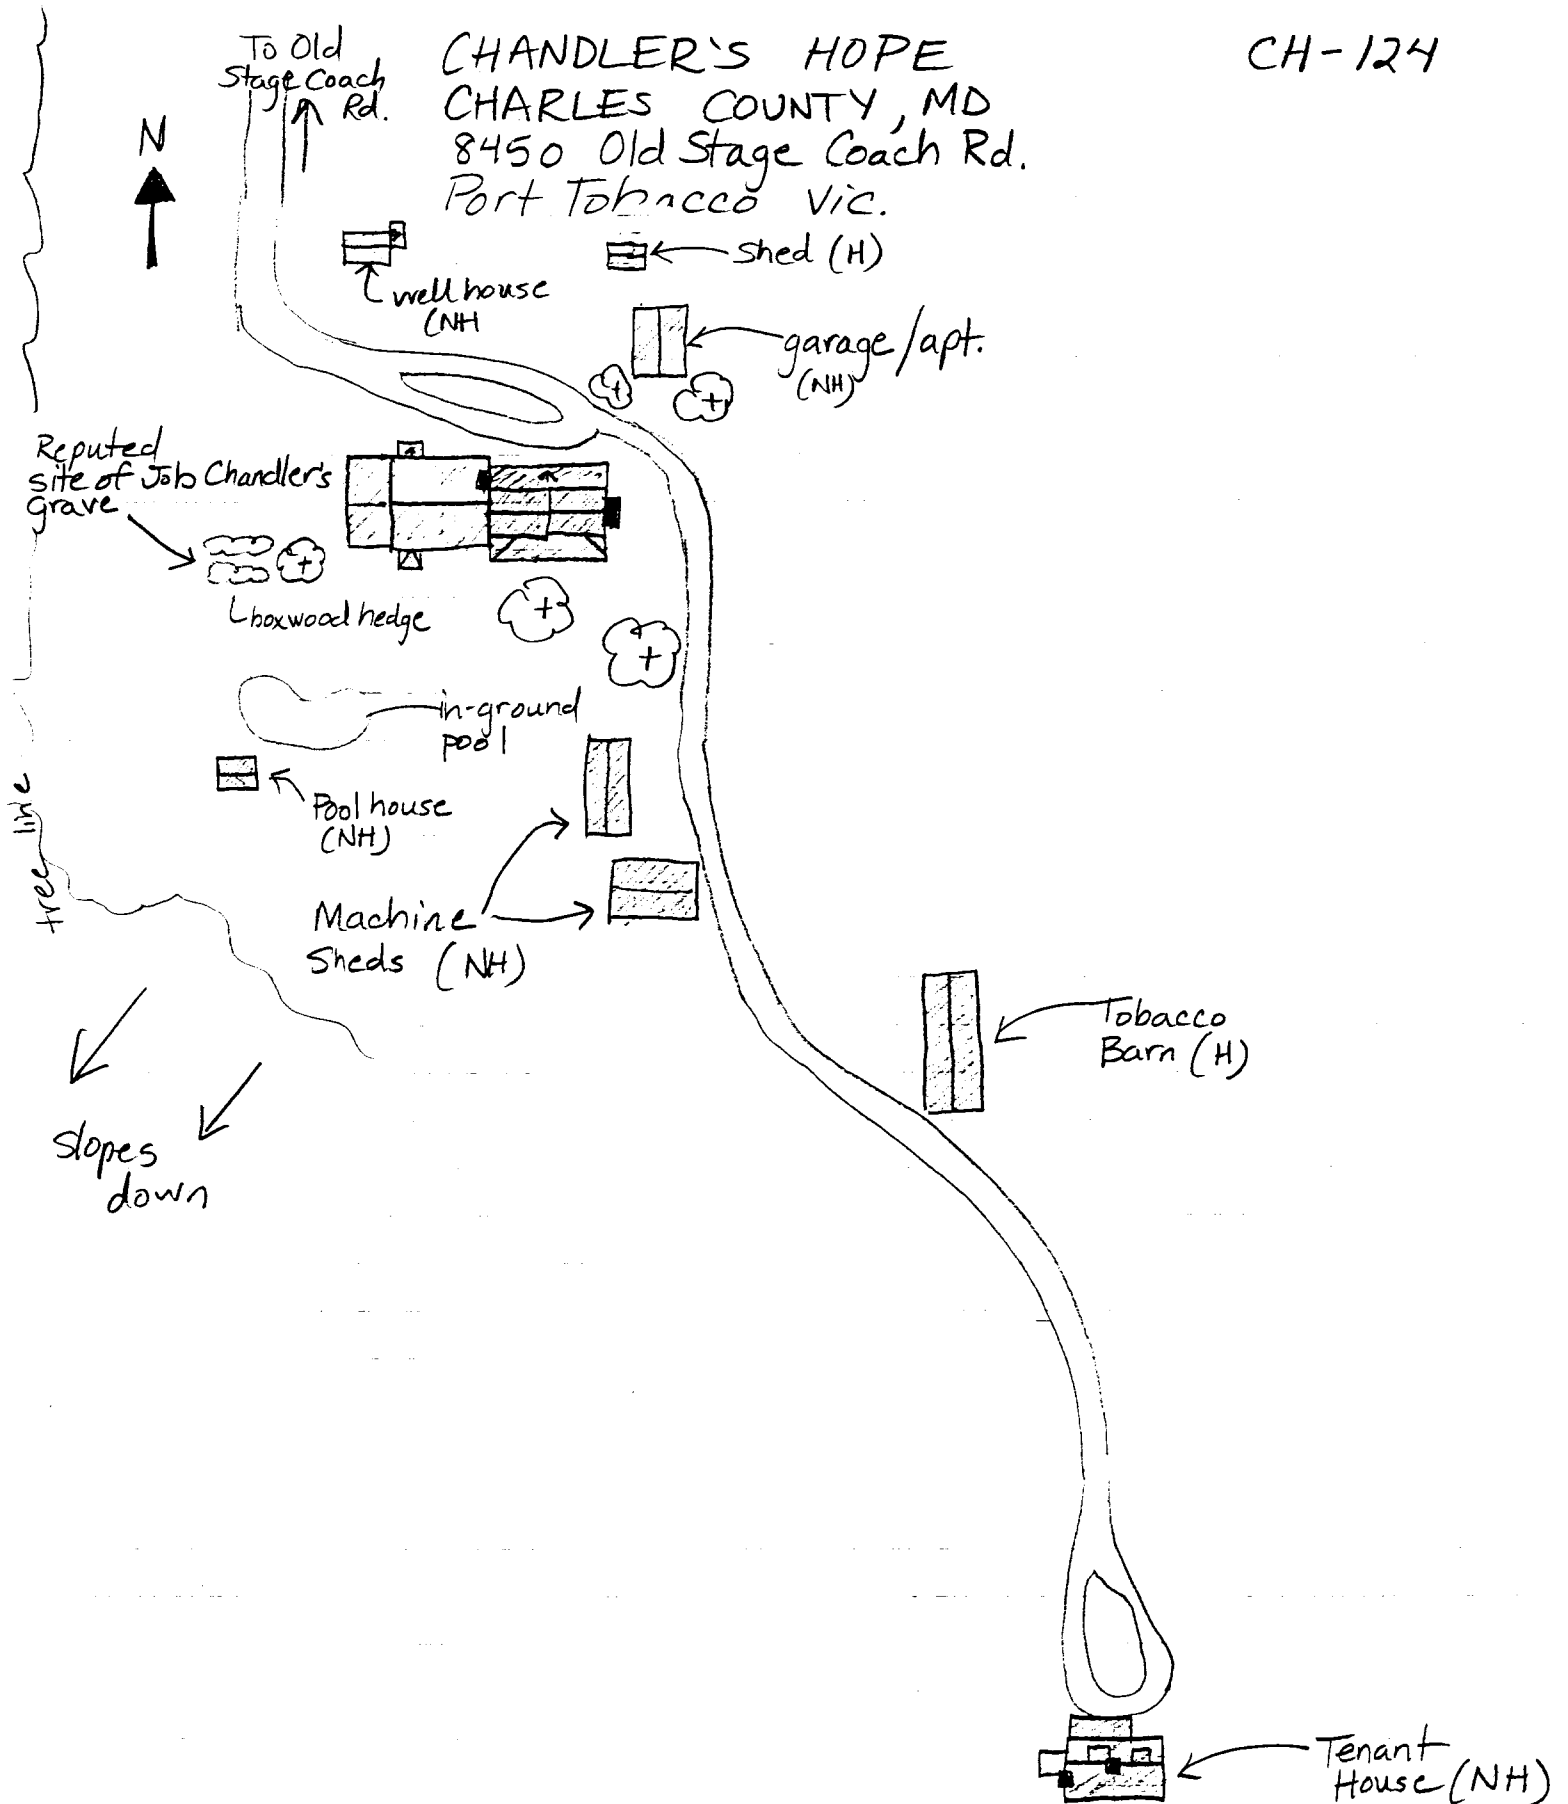 To Old
Stage Coach
Rd.
CHANDLER'S HOPE
CHARLES COUNTY, MD
8450 Old Stage Coach Rd.
Port Tobacco Vic.
CH-124
N
shed (H)
well house
(NH
garage/apt.
(NH)
Reputed
site of Job Chandler's
grave
boxwood hedge
in-ground
pool
Pool house
(NH)
tree line
Machine
Sheds (NH)
Tobacco
Barn (H)
Slopes
down
Tenant
House (NH)